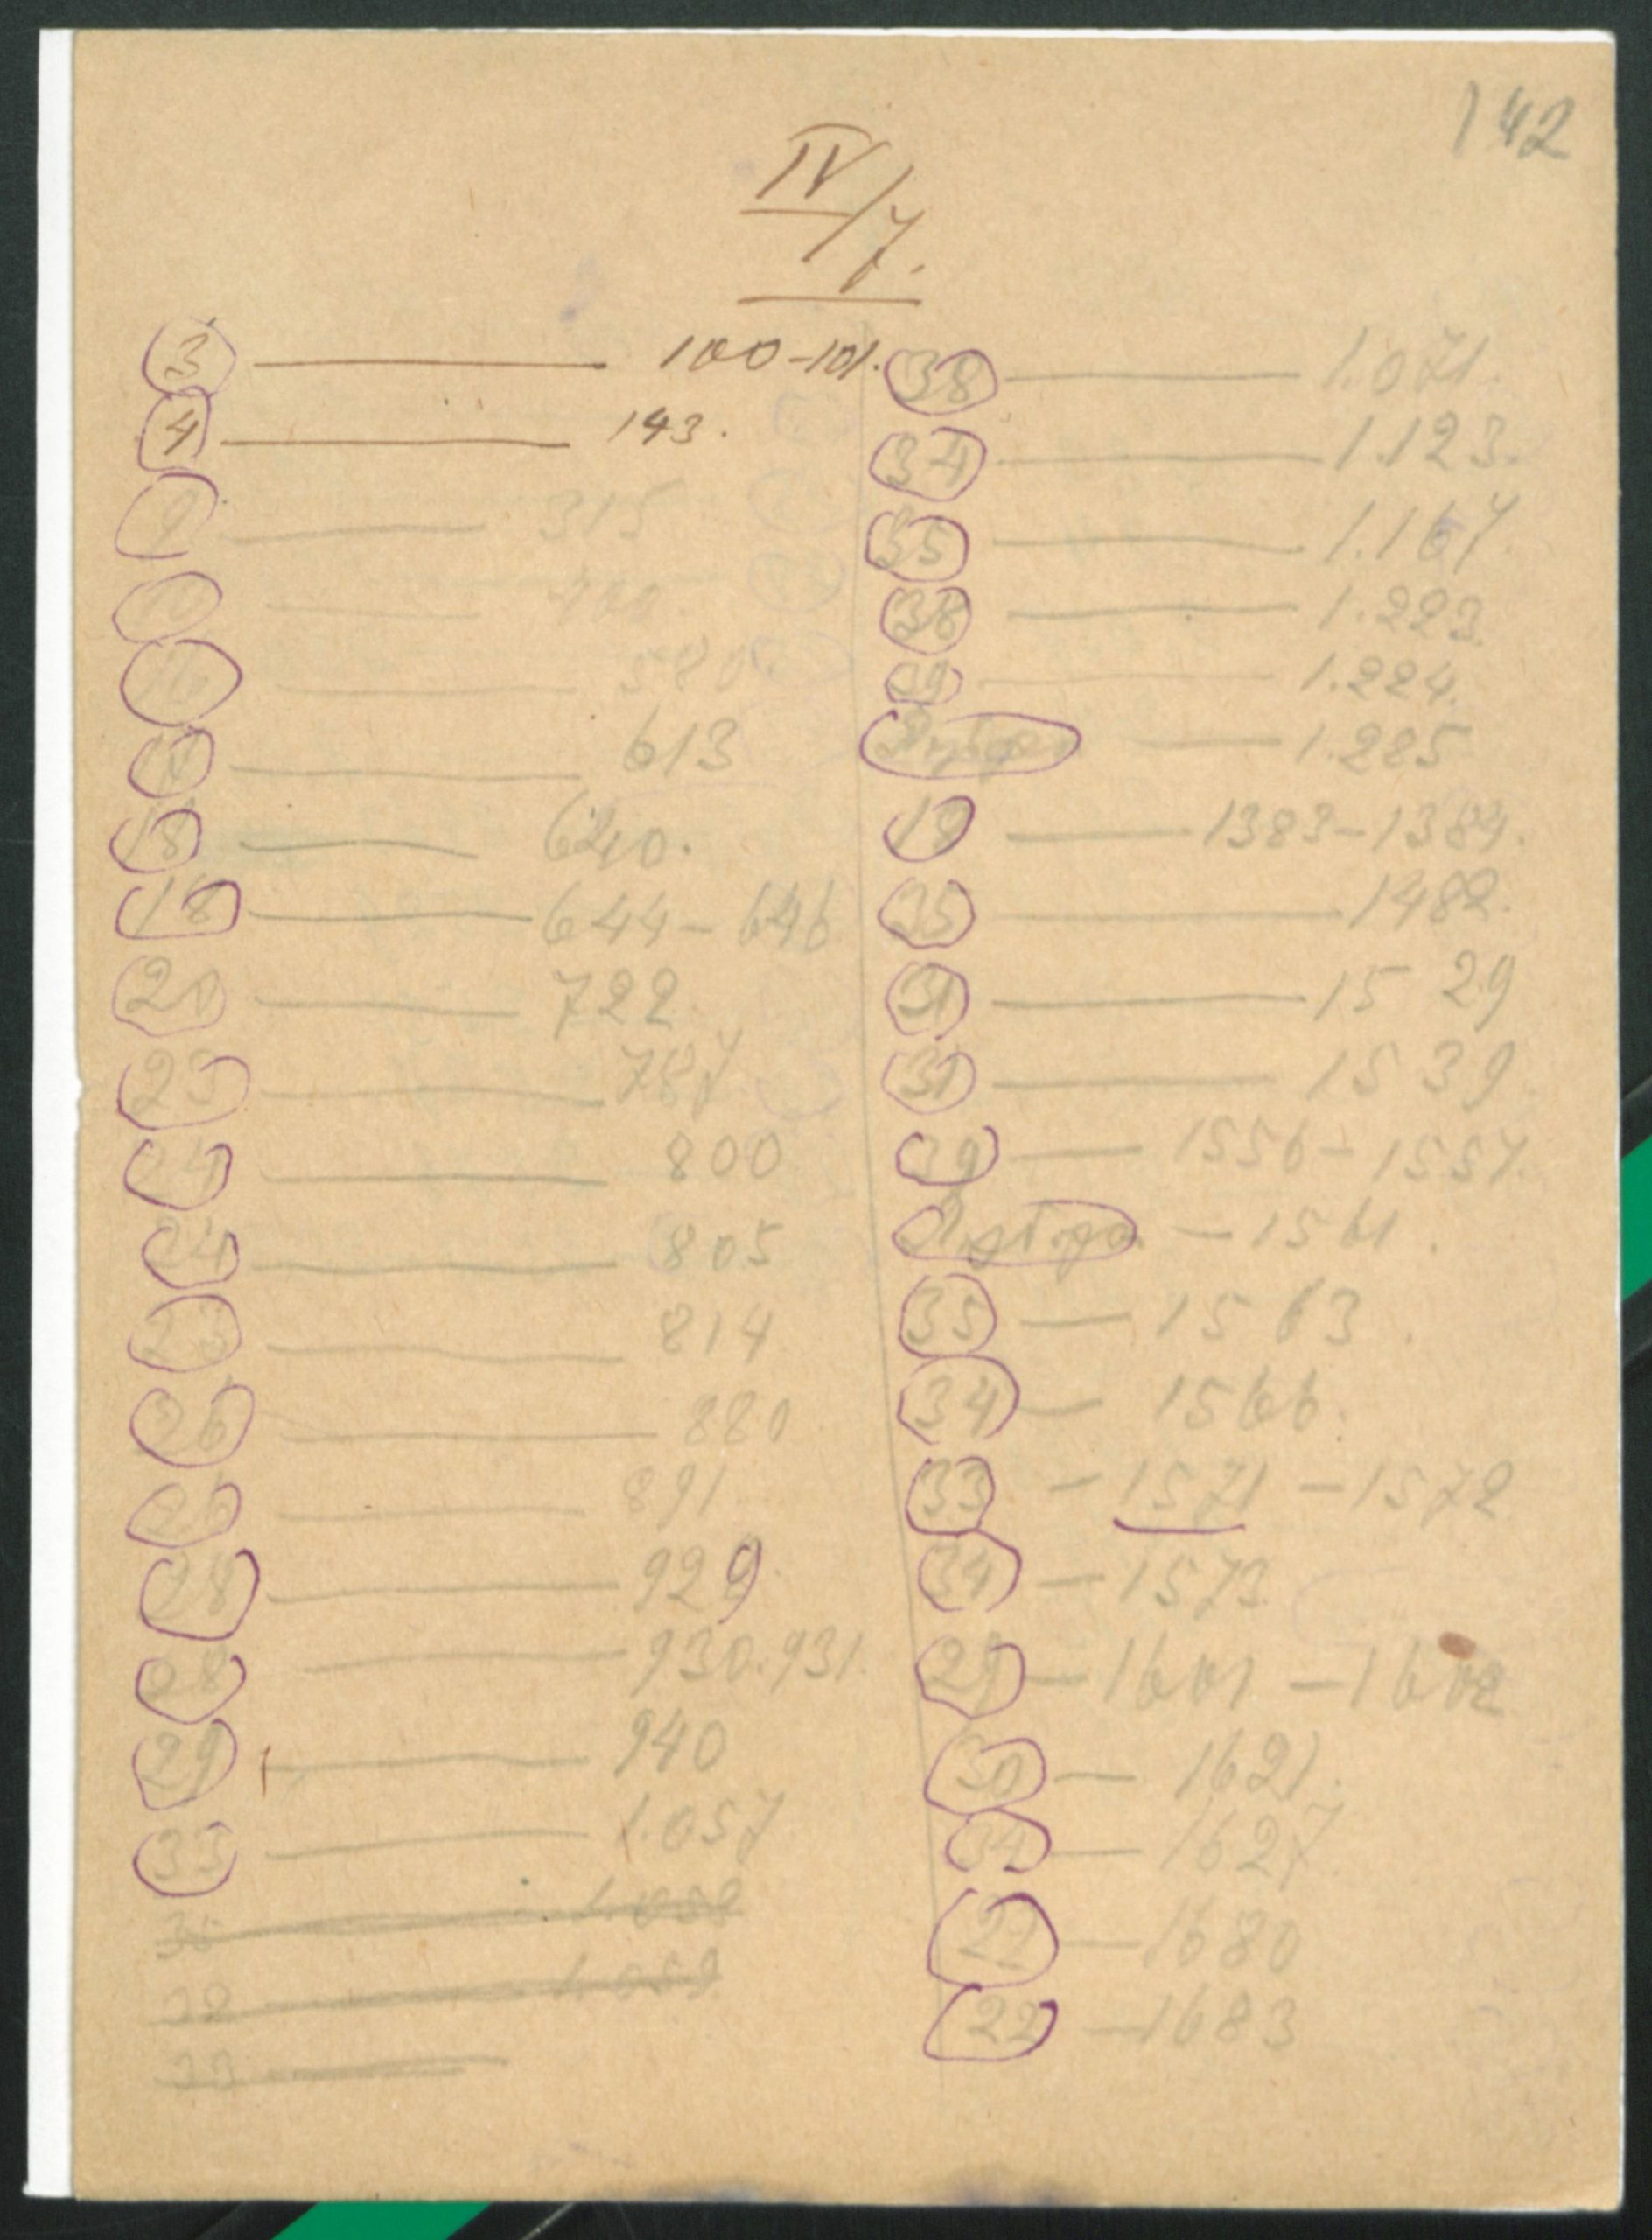 142
IV/7.
3 — 100-101.
4 — 143.
9 — 315
— 400.
16 — 580
— 613
18 — 640.
18 — 644-646
20 — 722
23 — 787
24 — 800
24 — 805
23 — 814
26 — 880
26 — 891
28 — 929
28 — 930.931.
29 — 940
33 — 1.057
1.058
1.059
38 — 1.071.
34 — 1.123.
35 — 1.167
38 — 1.223.
39 — 1.224.
— 1.225
19 — 1383-1384.
35 — 1482.
31 — 1529
31 — 1539
29 — 1556-1557.
— 1561.
35 — 1563.
34 — 1566.
33 — 1571-1572
34 — 1573
29 — 1601-1602
30 — 1621.
34 — 1627
22 — 1680
22 — 1683